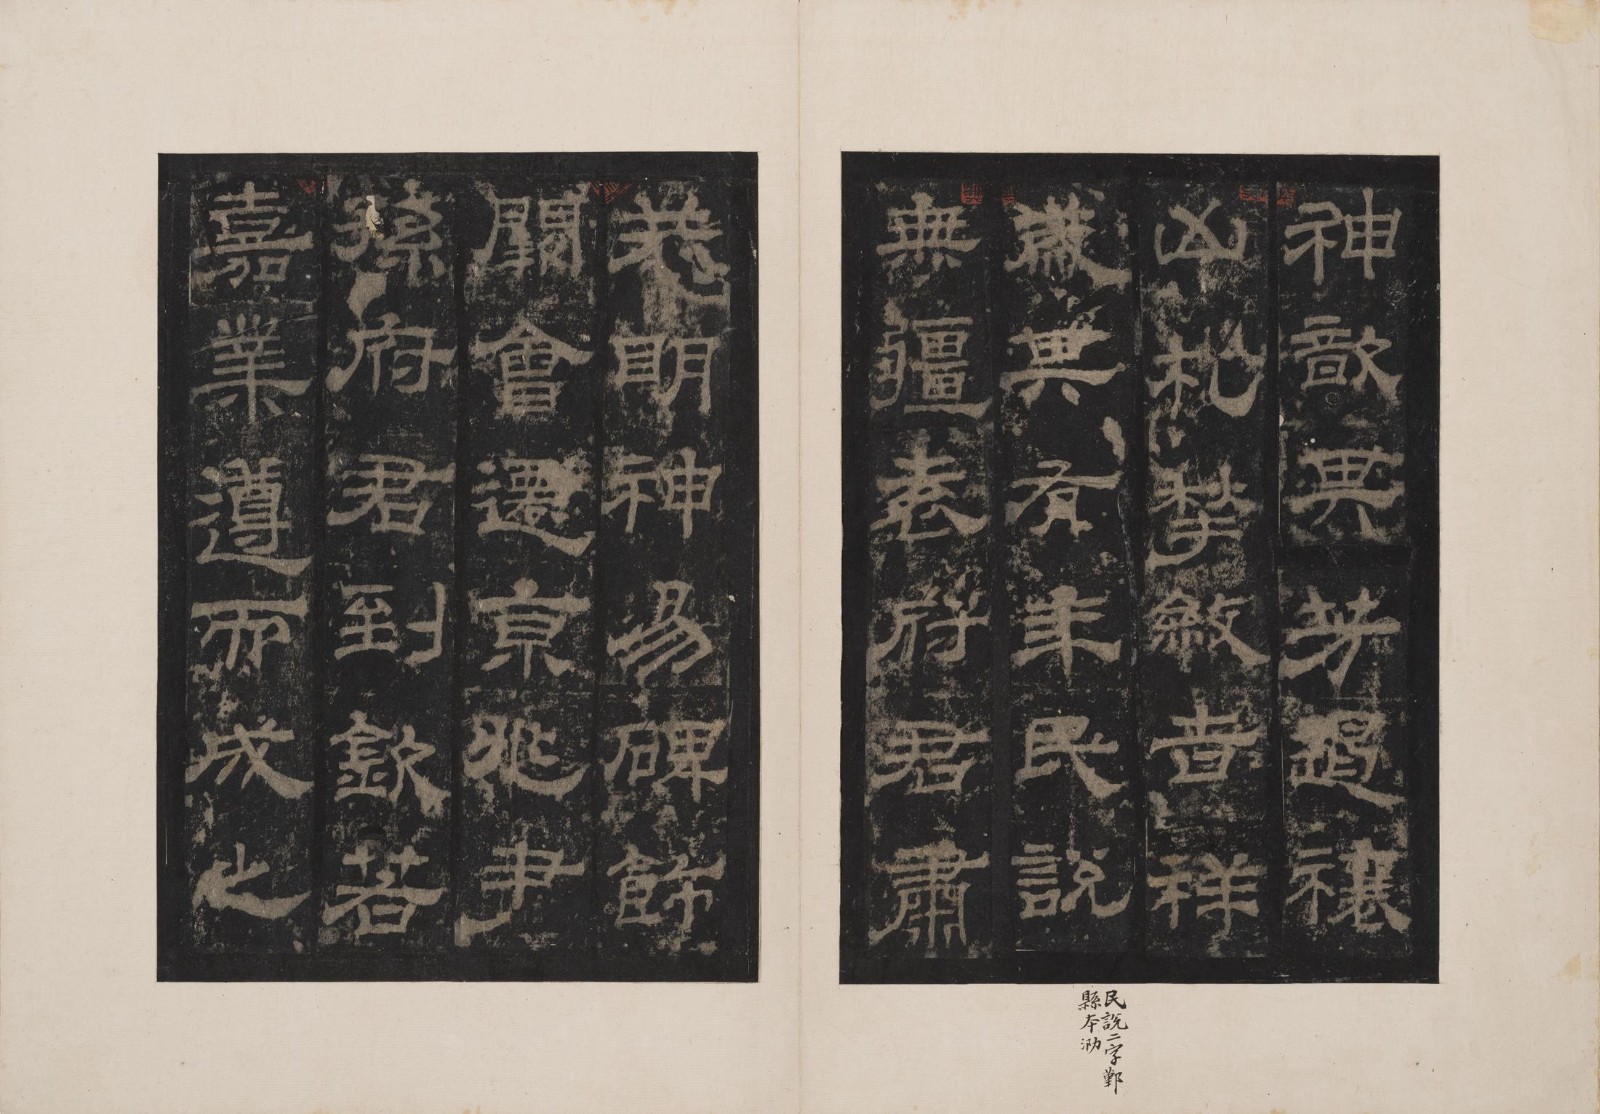 神歆其芳遏禳
凶札揫斂吉祥
歲其有年民說
無疆袁府君肅
恭明神易碑飾
闕會遷京兆尹
孫府君到欽若
嘉業遵而成之
民說二字鄞
縣本泐